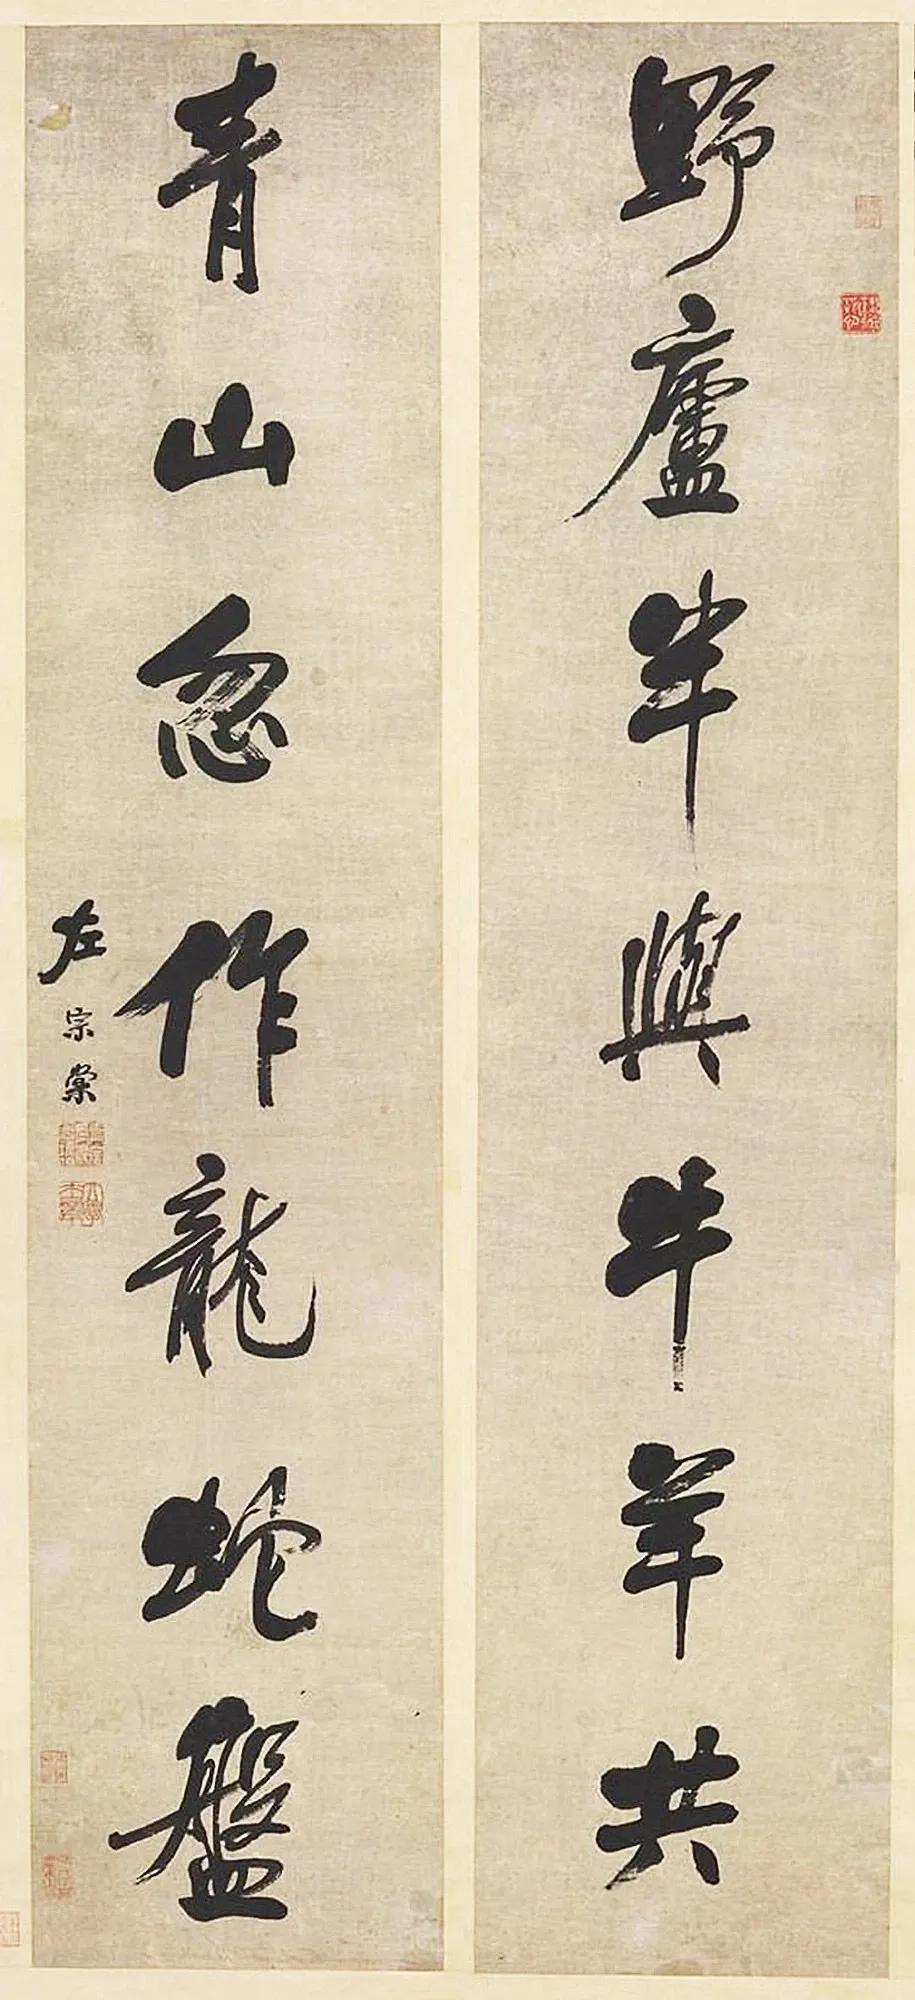 野廬半與牛羊共
青山忽作龍蛇盤
左宗棠